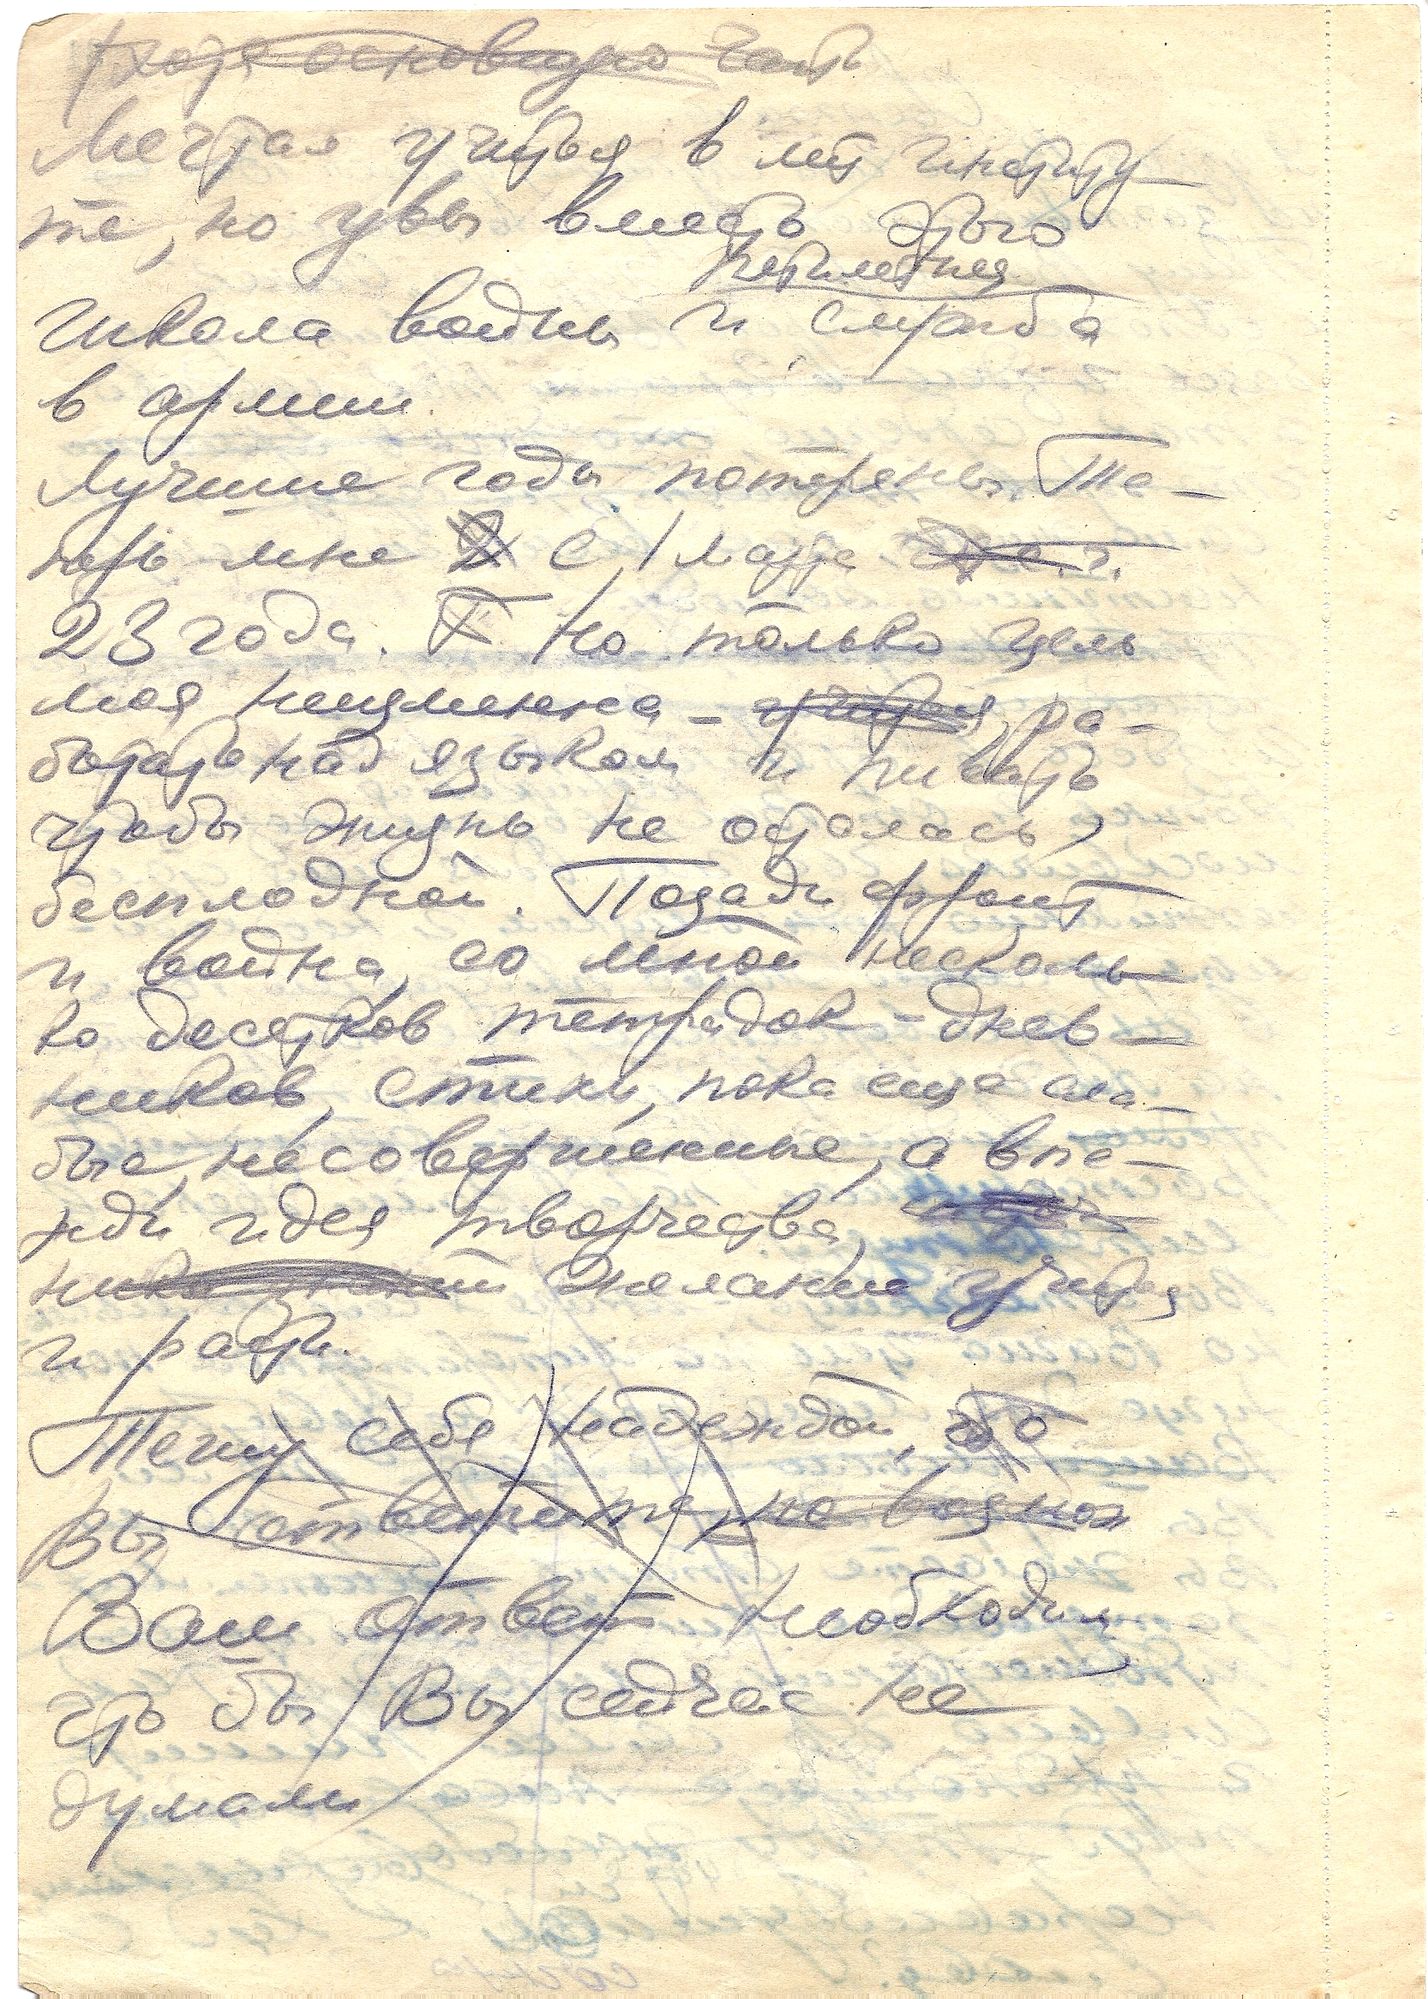 хотя основную часть
Мечтал учиться в лит институ
те, но увы вместо этого
пятилетняя
школа войны и служба
в армии.
Лучшие годы потеряны. Те-
перь мне с 1 марта
23 года. Но только цель
моя неизменна – учиться, ра-
ботать над языком и писать
чтобы жизнь не осталась
бесплодной. Позади фронт
и война, со мной несколь
ко десятков тетрадок – днев-
ников, стихи, пока еще сла-
бые, несовершенные, а впе-
жди идея творчества,
желание учиться
и расти.
Тешу себя надеждой, что
Вы ответите, но
Ваш ответ необходим
что бы Вы сейчас не
думали